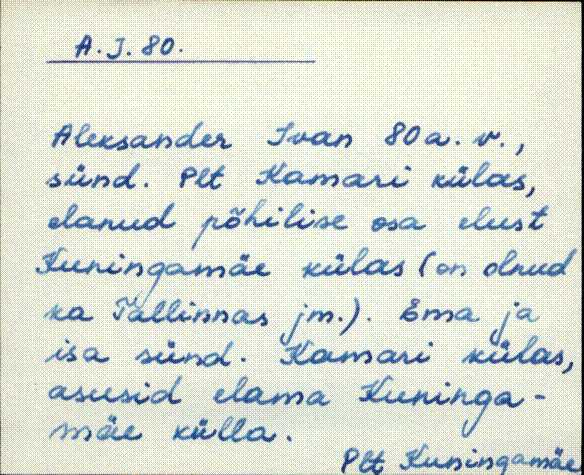 A. J. 80.
Aleksander Ivan 80 a. v.,
sünd. Plt Kamari külas,
elanud põhilise osa elust
Kuningamäe külas (on olnud
ka Tallinnas jm.). Ema ja
isa sünd. Kamari külas,
asusid elama Kuninga-
mäe külla.
Plt Kuningamäe